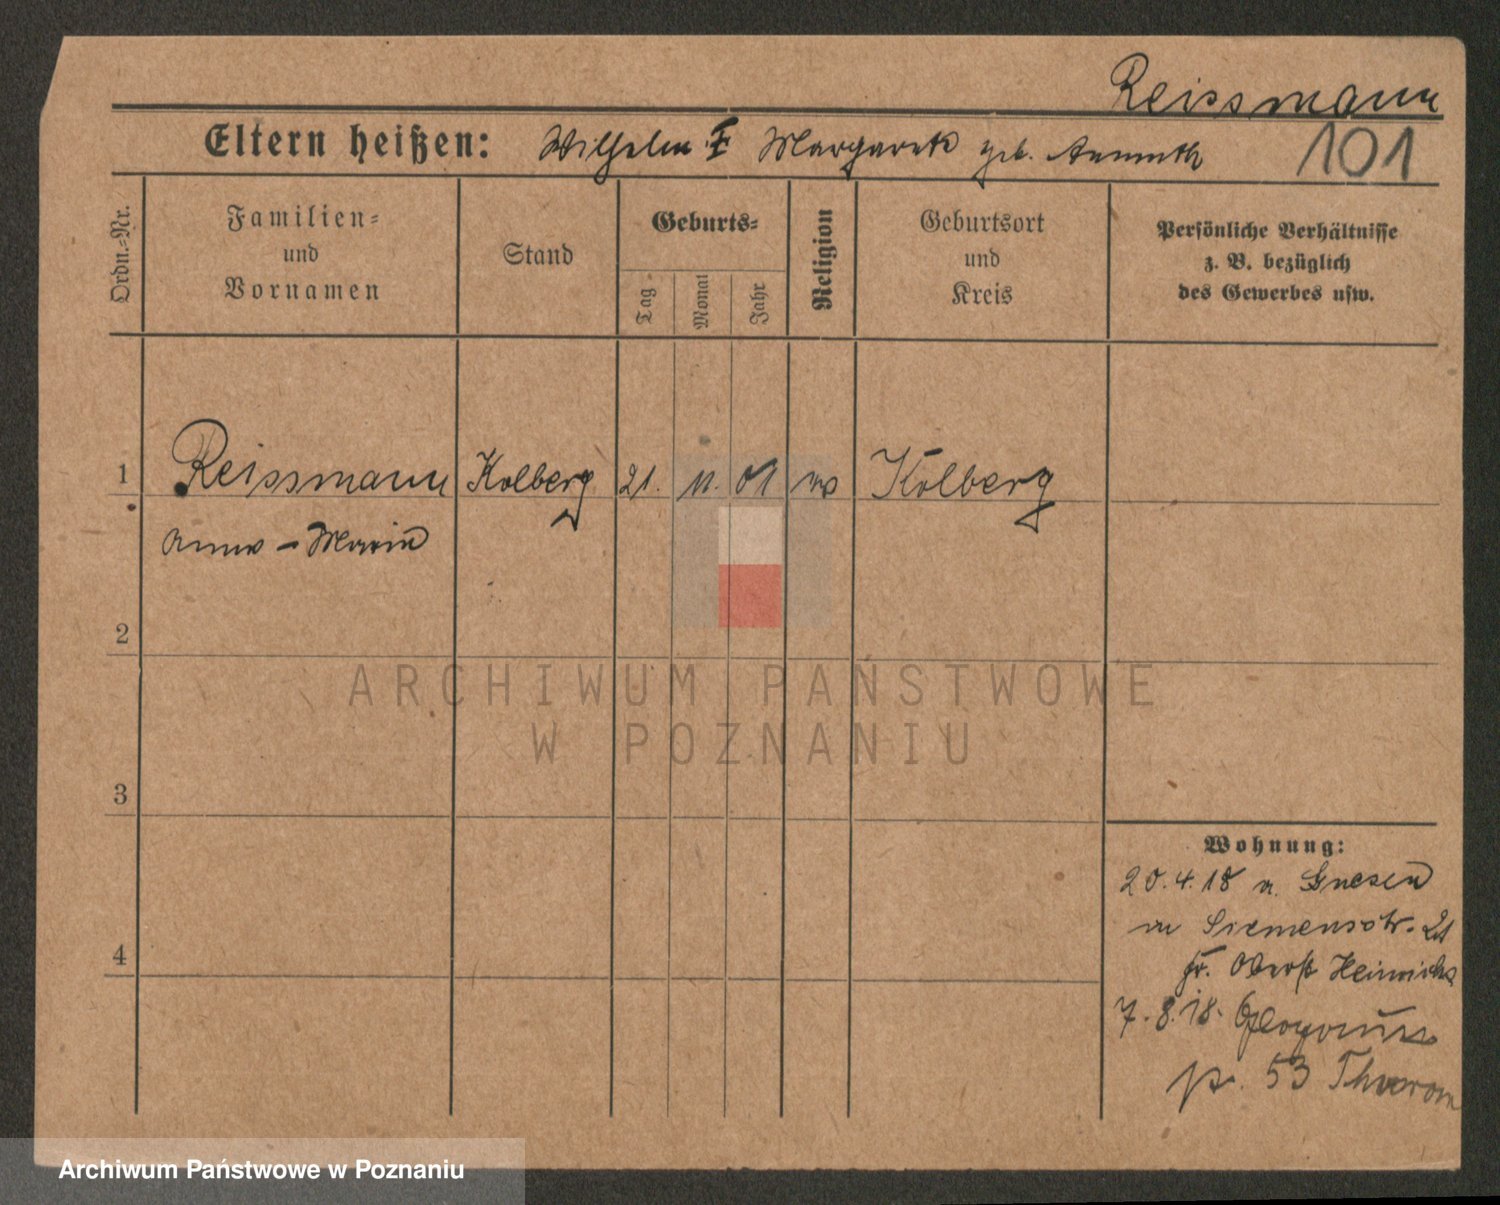 Reissmann
Eltern heißen: Wilhelm Margareth geb. Annuth 101
Ordn.-Nr.
Familien-
und
Vornamen
Stand
Geburts-
Tag
Monat
Jahr
Religion
Geburtsort
und
Kreis
Persönliche Verhältnisse
z. B. bezüglich
des Gewerbes usw.
1 Reissmann Kolberg 21. 11. 01 Kolberg
Anna - Marie
2
3
4
Wohnung:
20.4.18 Gnesen
Siemensstr. 21
fr. Oberst Heinrichs
7.8.18.
53
ARCHIWUM PAŃSTWOWE
W POZNANIU
Archiwum Państwowe w Poznaniu